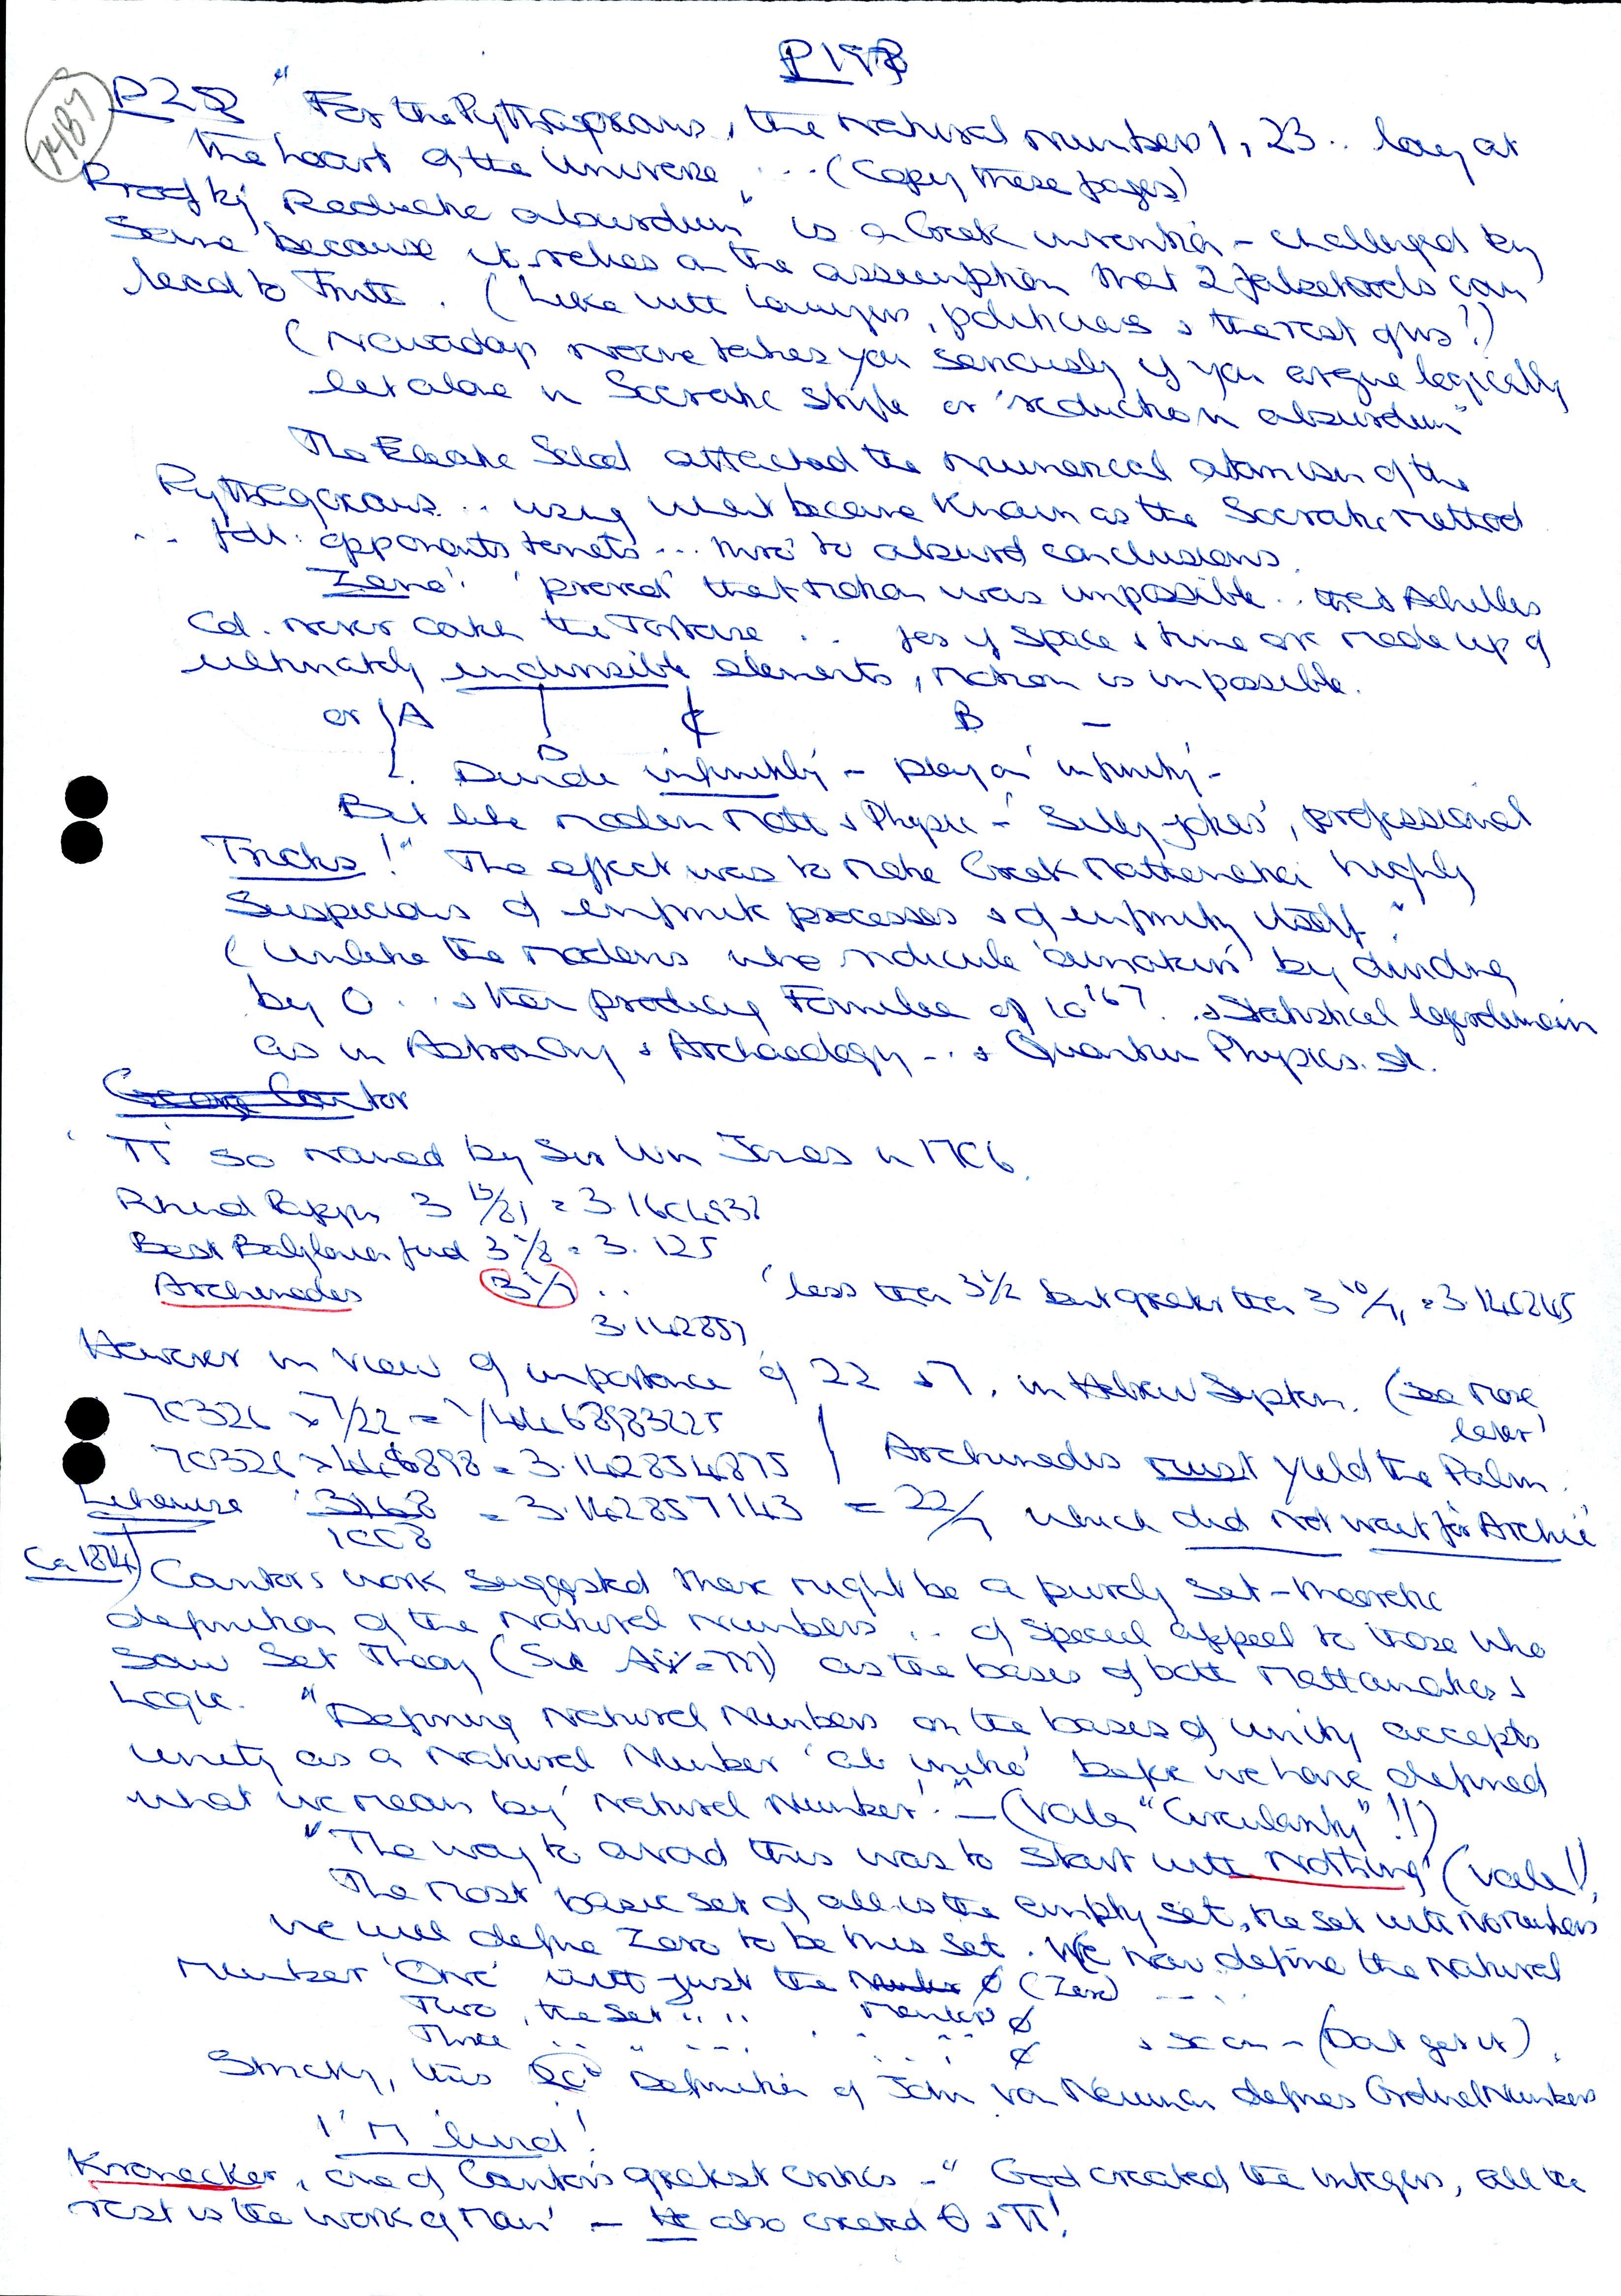 P 198
P 252 "For the Pythagoreans, the natural numbers 1, 23.. lay at
the heart of the Universe ... (Copy these pages)
Proof by Reductio absurdum" is a Greek invention - challenged by
Some because it relies on the assumption that 2 falsehoods can
lead to Truth. (Like with lawyers, politicians & the rest of us!)
(Nowadays noone takes you seriously if you argue logically
let alone in Socratic style or 'reduction absurdum"
The Eleatic School attacked the numerical atomism of the
Pythagoreans... using what became known as the Socratic method
.. foll. opponents tenets ... thro' to absurd conclusions.
Zeno: 'proved' that motion was impossible.. that Achilles
Cd. never catch the Tortoise .. yes if space & time are made up of
ultimately indivisible elements, motion is impossible.
or A C B -
D
Divide infinitely - play on 'infinity' -
But like modern Math & Physic - 'Silly-jokes', professional
Tricks!" The effect was to make Greek Mathematici highly
Suspicious of infinite processes & of infinity itself."
(Unlike the moderns who ridicule 'amateurs' by dividing
by 0 .. & then produce Formulae of 10^167 .. & Statistical legerdemain
as in Astronomy & Archaeology - & Quantum Physics. etc.
George Cantor
'π' so named by Sir Wm Jones in 1706.
Rhind Papyrus 3 13/81 = 3.1604938
Best Babylonian find 3 1/8 = 3.125
Archimedes 3 1/7 .. 'less than 3 1/2 but greater than 3 10/71 = 3.140845
3.142857
However in view of importance of 22 & 7. in Hebrew System. (see more
later)
70326 x 7/22 =
70326 x 446898 = 3.142854875 / Archimedes must yield the Palm.
Likewise 3168/1008 = 3.142857143 = 22/7 which did not wait for 'Archie'
Ca 1874) Cantors work suggested there might be a purely Set-theoretic
definition of the Natural Numbers .. of special appeal to those who
saw Set Theory (See as the bases of both Mathematics &
Logic. "Defining Natural Numbers on the bases of unity accepts
unity as a Natural Number 'ab initio' before we have defined
what we mean by 'Natural Number'." - (Vale "Circularity"!!)
"The way to avoid this was to start with Nothing" (Vale!!
The most basic set of all is the empty set, the set with no members
we will define Zero to be this set. We now define the Natural
Number 'One' with just the Number ∅ (Zero) ....
Two, the set " " members ∅
Three .. " .. ∅ & so on - (Dont get it).
Strictly, this Definition of John von Neuman defines Ordinal Numbers
I'M lured!
Kronecker, one of Cantor's greatest critics - "God created the integers, all the
rest is the work of Man' - He also created Θ & π!